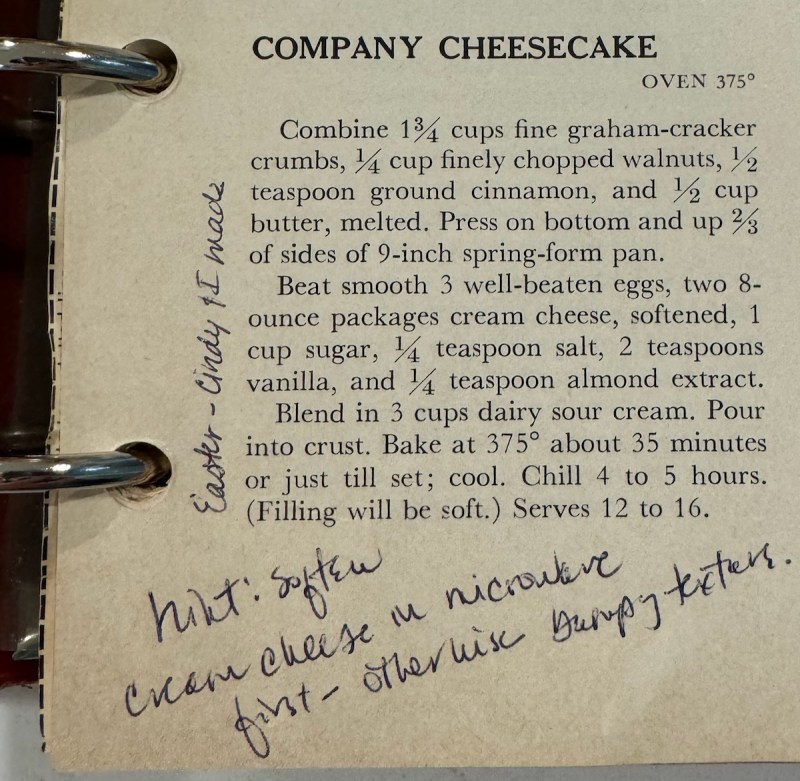 COMPANY CHEESECAKE
OVEN 375°
Combine 1¾ cups fine graham-cracker
crumbs, ¼ cup finely chopped walnuts, ½
teaspoon ground cinnamon, and ½ cup
butter, melted. Press on bottom and up ⅔
of sides of 9-inch spring-form pan.
Beat smooth 3 well-beaten eggs, two 8-
ounce packages cream cheese, softened, 1
cup sugar, ¼ teaspoon salt, 2 teaspoons
vanilla, and ¼ teaspoon almond extract.
Blend in 3 cups dairy sour cream. Pour
into crust. Bake at 375° about 35 minutes
or just till set; cool. Chill 4 to 5 hours.
(Filling will be soft.) Serves 12 to 16.
Easter - Cindy & I made
Hint: Soften
cream cheese in microwave
first - otherwise texture.